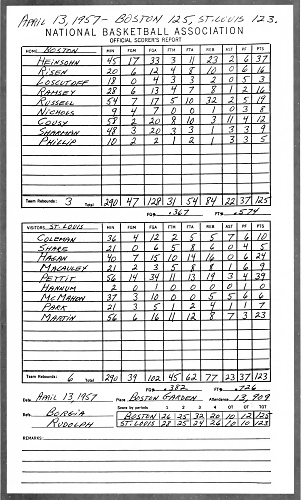 APRIL 13, 1957 - BOSTON 125, ST. LOUIS 123.
NATIONAL BASKETBALL ASSOCIATION
OFFICIAL SCORER'S REPORT
HOME: BOSTON MIN FGM FGA FTM FTA REB AST PF PTS
HEINSOHN 45 17 33 3 11 23 2 6 37
RISEN 20 6 12 4 8 10 0 6 16
LOSCUTOFF 18 0 4 3 3 2 0 5 3
RAMSEY 28 6 13 4 7 8 1 2 16
RUSSELL 54 7 17 5 10 32 2 5 19
NICHOLS 9 4 7 0 0 1 0 3 8
COUSY 58 2 20 8 10 3 11 4 12
SHARMAN 48 3 20 3 3 1 3 3 9
PHILLIP 10 2 2 1 2 1 3 3 5
Team Rebounds: 3 Total 290 47 128 31 54 84 22 37 125
FG% .367 FT% .574
VISITORS: ST. LOUIS MIN FGM FGA FTM FTA REB AST PF PTS
COLEMAN 36 4 12 2 5 5 7 6 10
SHARE 21 0 6 5 8 6 0 4 5
HAGAN 40 7 15 10 14 16 0 6 24
MACAULEY 21 2 3 5 8 8 1 6 9
PETTIT 56 14 34 11 13 19 3 4 39
HANNUM 2 0 1 0 0 0 0 1 0
MCMAHON 37 3 10 0 0 5 5 6 6
PARK 21 3 5 1 2 4 1 1 7
MARTIN 56 6 16 11 12 8 7 3 23
Team Rebounds: 6 Total 290 39 102 45 62 77 23 37 123
FG% .382 FT% .726
Date APRIL 13, 1957 Place BOSTON GARDEN Attendance 13,909
Score by periods 1 2 3 4 OT OT TOT
Refs. BORGIA BOSTON 26 25 32 20 10 12 125
RUDOLPH ST. LOUIS 28 25 24 26 10 10 123
REMARKS: